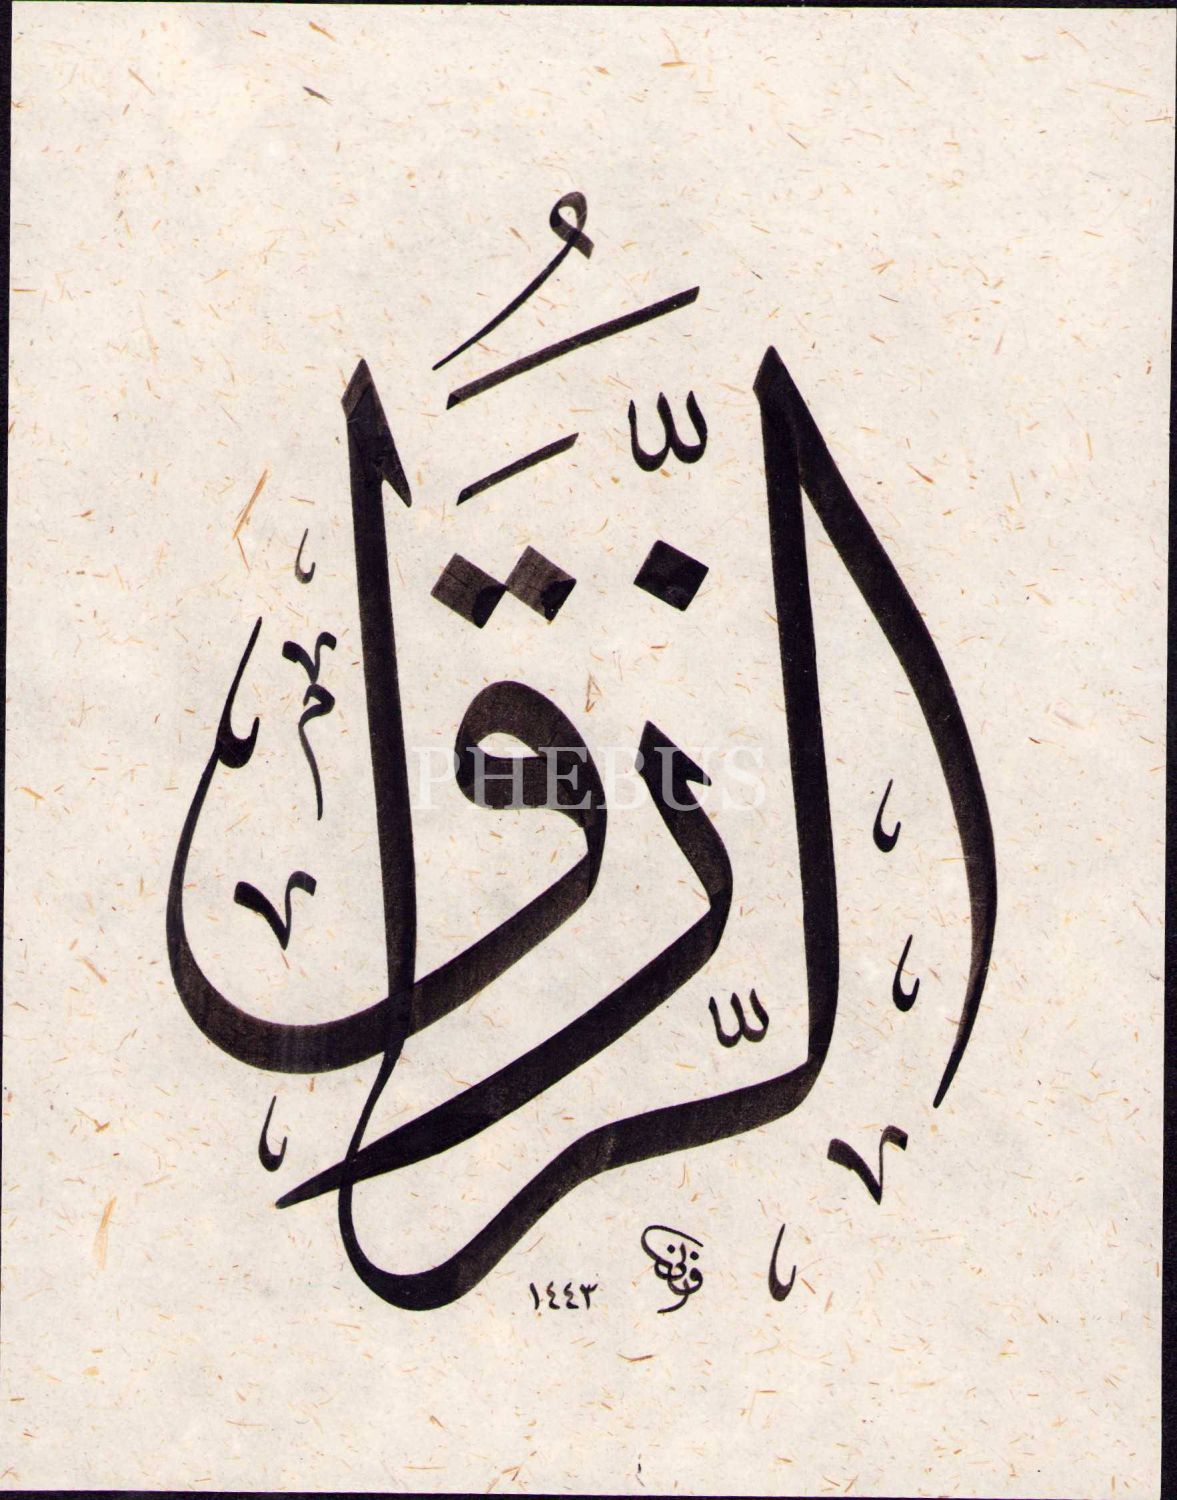 الرَّزَّاقُ
١٤٤٣
PHEBUS